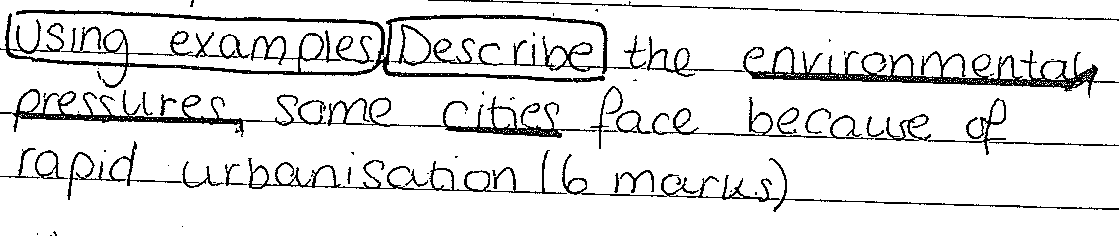 Using examples Describe the environmental
pressures, some cities face because of
rapid urbanisation (6 marks)